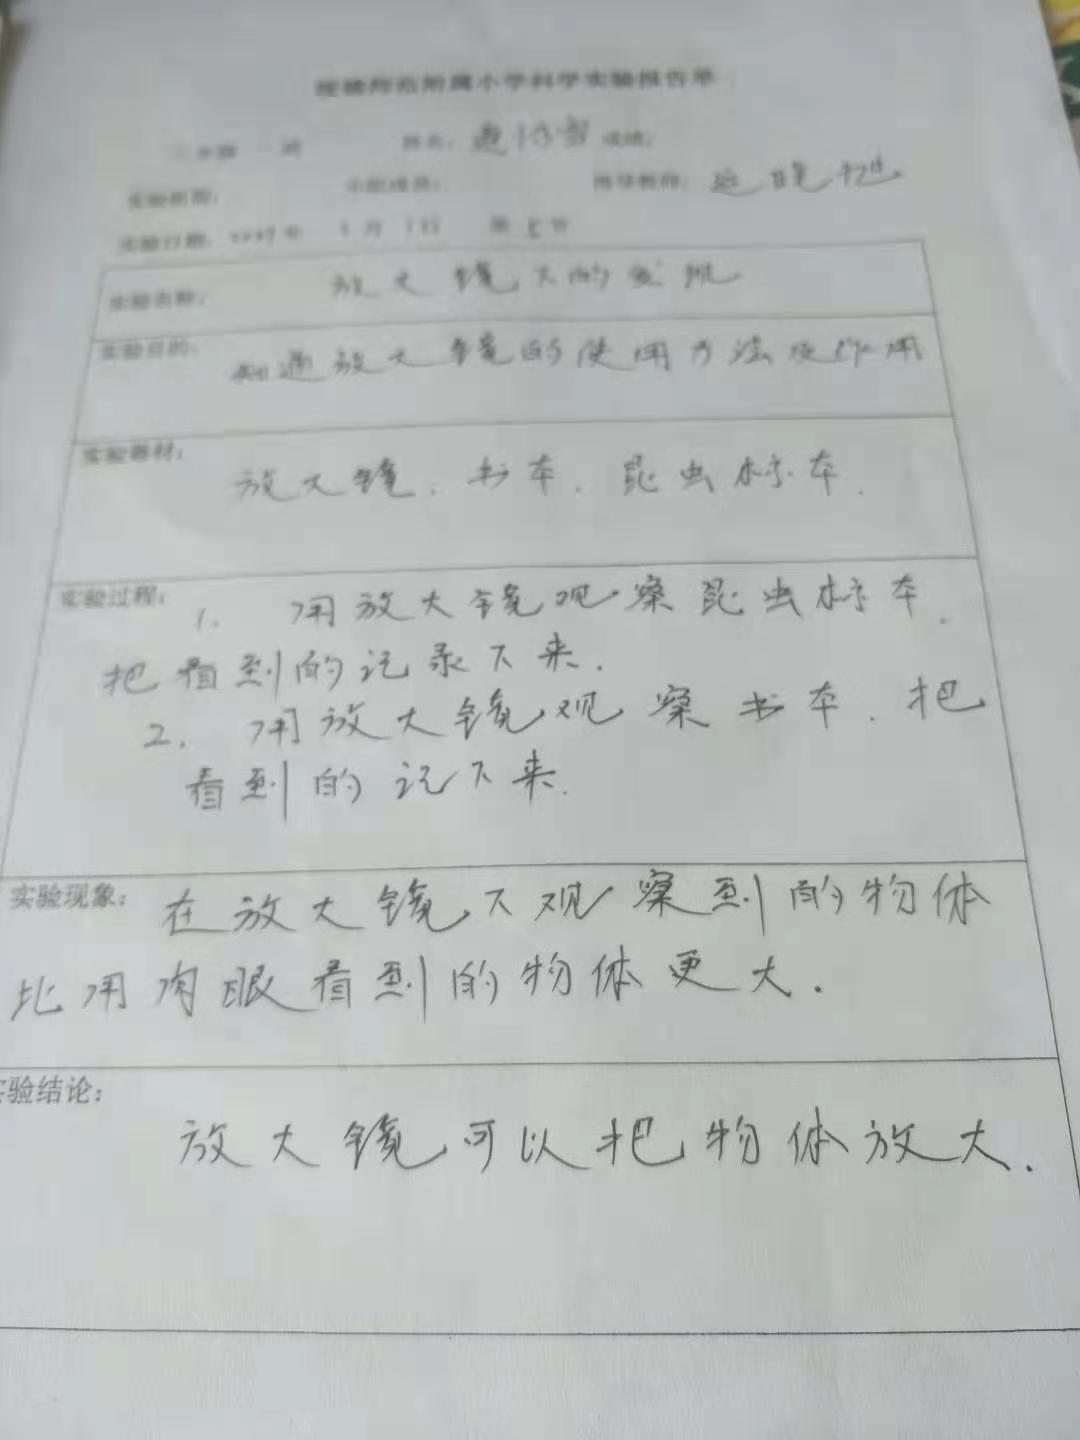 附属小学科学实验报告单
姓名： 成绩：
实验班级： 小组成员： 指导教师：
实验日期： 年 月 日 第 节
实验名称： 放大镜下的发现
实验目的： 知道放大镜的使用方法及作用
实验器材：
放大镜．书本．昆虫标本．
实验过程：
1． 用放大镜观察昆虫标本．
把看到的记录下来．
2． 用放大镜观察书本．把
看到的记下来．
实验现象： 在放大镜下观察到的物体
比用肉眼看到的物体更大．
验结论：
放大镜可以把物体放大．